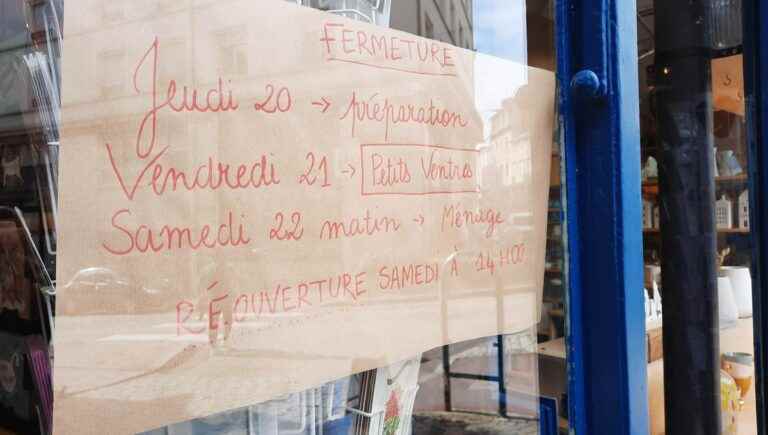 FERMETURE
Jeudi 20 → préparation
Vendredi 21 → Petits Ventres
Samedi 22 matin → Ménage
RÉ.OUVERTURE SAMEDI À 14H00